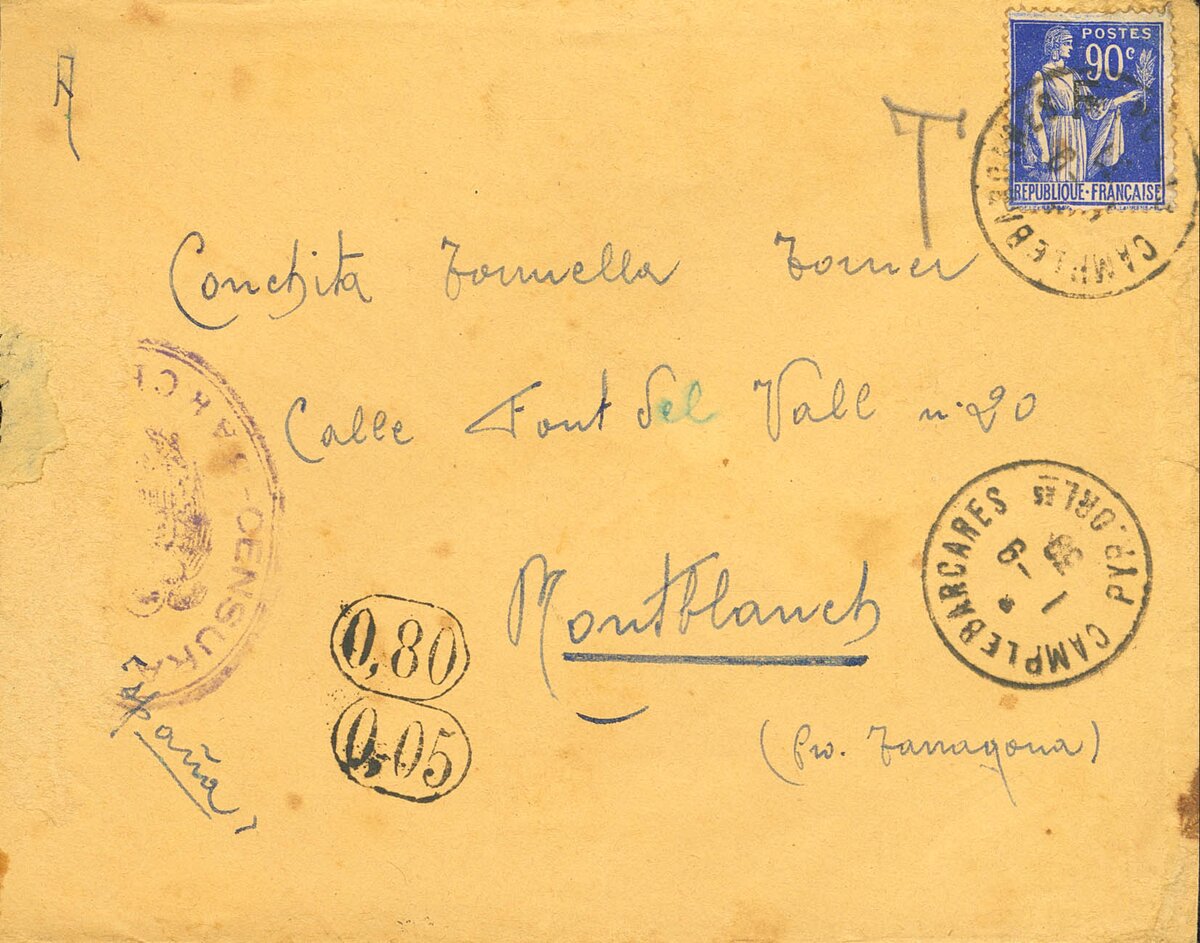 POSTES
90c
REPUBLIQUE·FRANÇAISE
CAMPLEBARCARES
T
Conchita
Calle Font del Vall nº 20
Montblanch
(Pro. Tarragona)
España
CENSURA
0,80
0,05
CAMPLEBARCARES PYR.ORLES
1-9
39